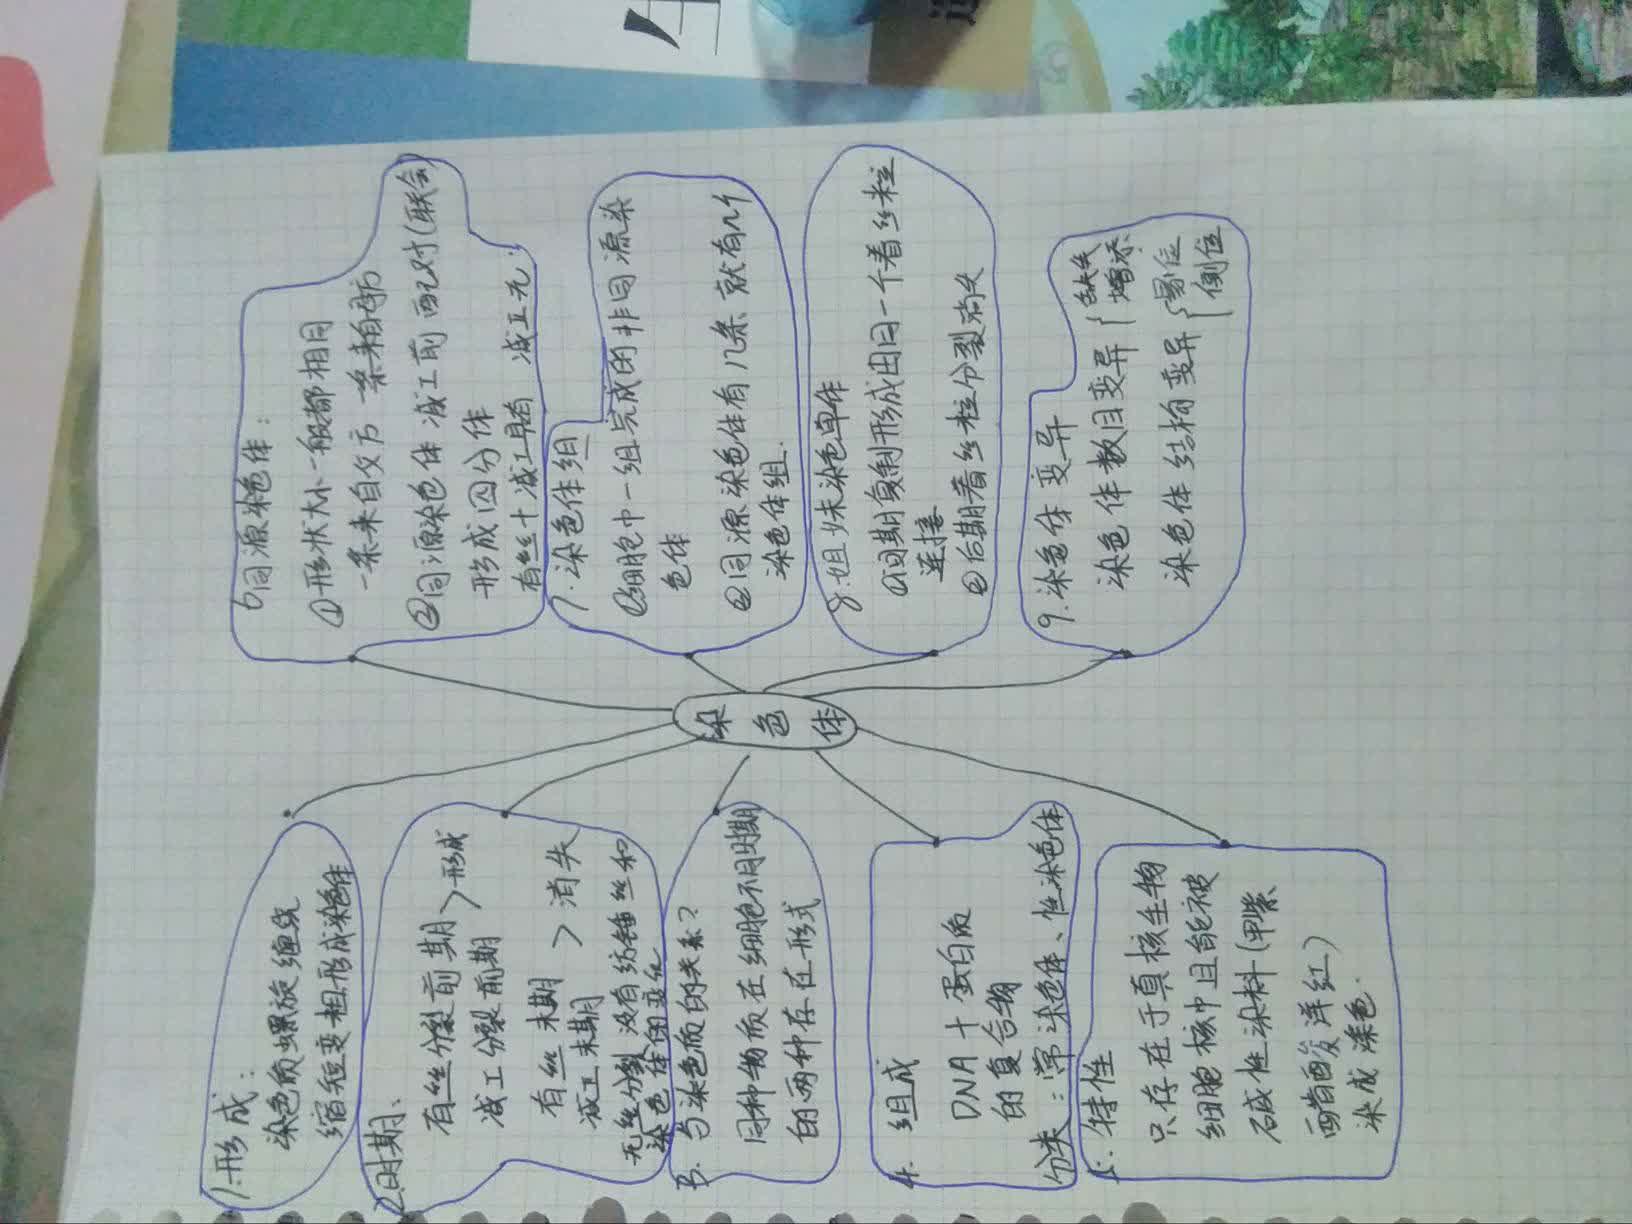 染色体
1.形成：
染色质螺旋缠绕
缩短变粗形成染色体
2.时期、
有丝分裂前期>形成
减I分裂前期
有丝末期 > 消失
减II末期
无丝分裂没有纺锤丝和
染色体的变化
3.
与染色质的关系？
同种物质在细胞不同时期
的两种存在形式
4. 组成
DNA＋蛋白质
的复合物
分类：常染色体、性染色体
5. 特性
只存在于真核生物
细胞核中且能被
碱性染料（甲紫
醋酸洋红）
染成深色.
6同源染色体：
①形状大小一般都相同
一条来自父方 一条来自母方
②同源染色体 减I前 配对(联会)
形成四分体
有丝＋减I具有 减II无.
7.染色体组
①细胞中一组完成的非同源染
色体
②同源染色体有几条 就有几个
染色体组.
8.姐妹染色单体
①间期复制形成由同一个着丝粒
连接
②后期着丝粒分裂消失
9.染色体变异
染色体数目变异{缺失
增添
染色体结构变异{易位
倒位